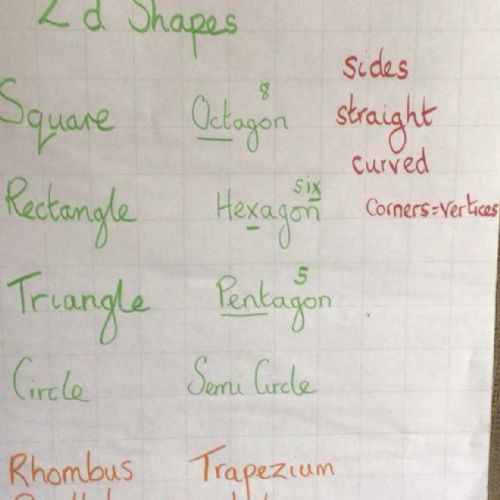 2d Shapes
Square
Octagon
8
Rectangle
Hexagon
six
Triangle
Pentagon
5
Circle
Semi Circle
Rhombus
Trapezium
sides
straight
curved
Corners=vertices